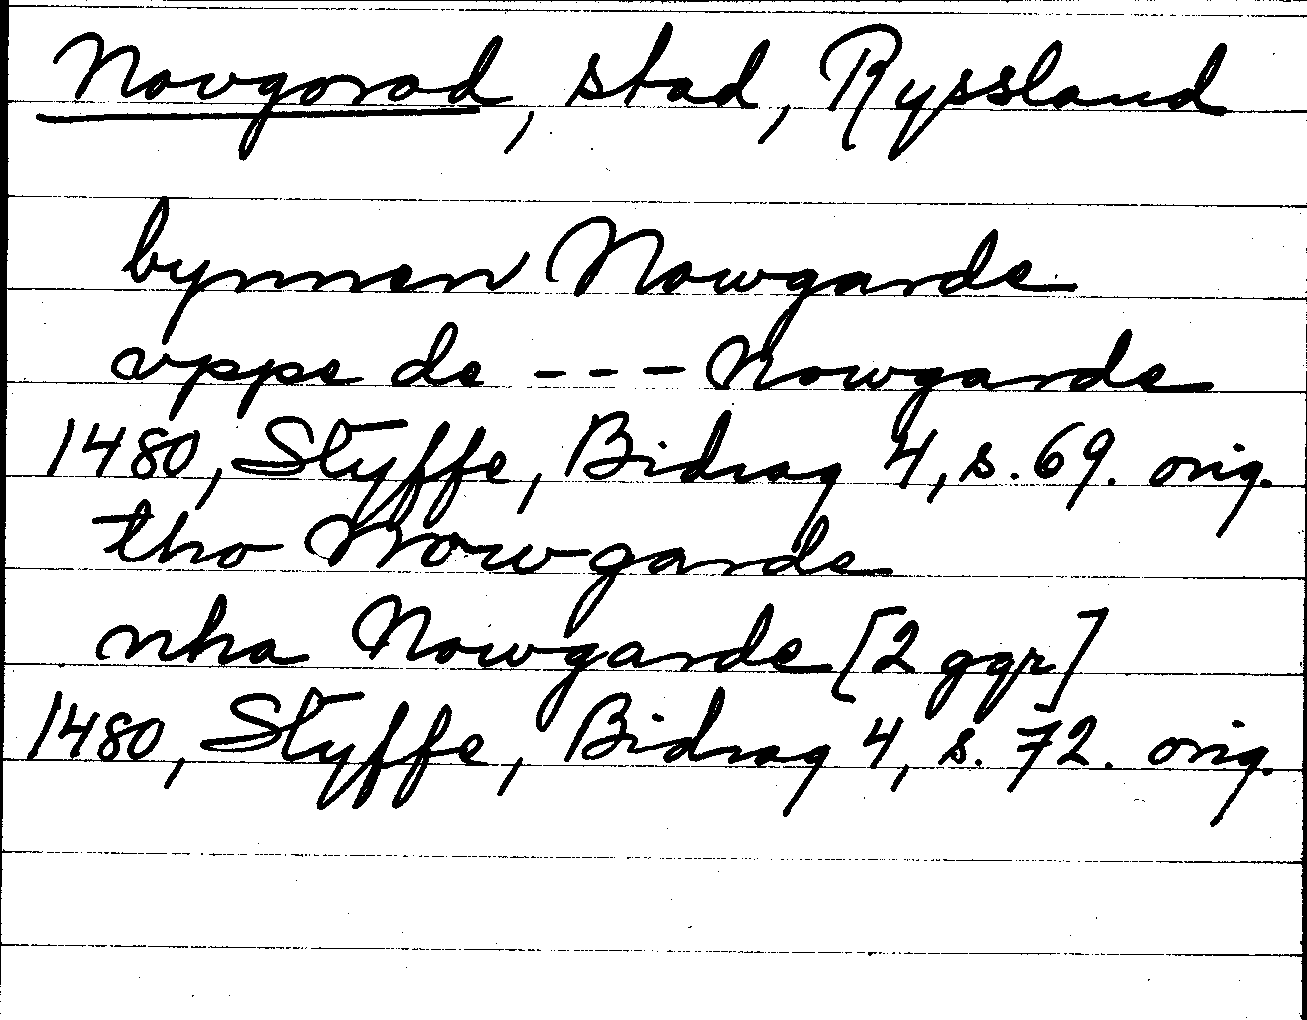 Novgorod, stad, Ryssland
bynnen Nowgarde
vppe de --- Nowgarde
1480, Styffe, Bidrag 4, s. 69. orig.
tho Nowgarde
nha Nowgarde [2 ggr]
1480, Styffe, Bidrag 4, s. 72. orig.